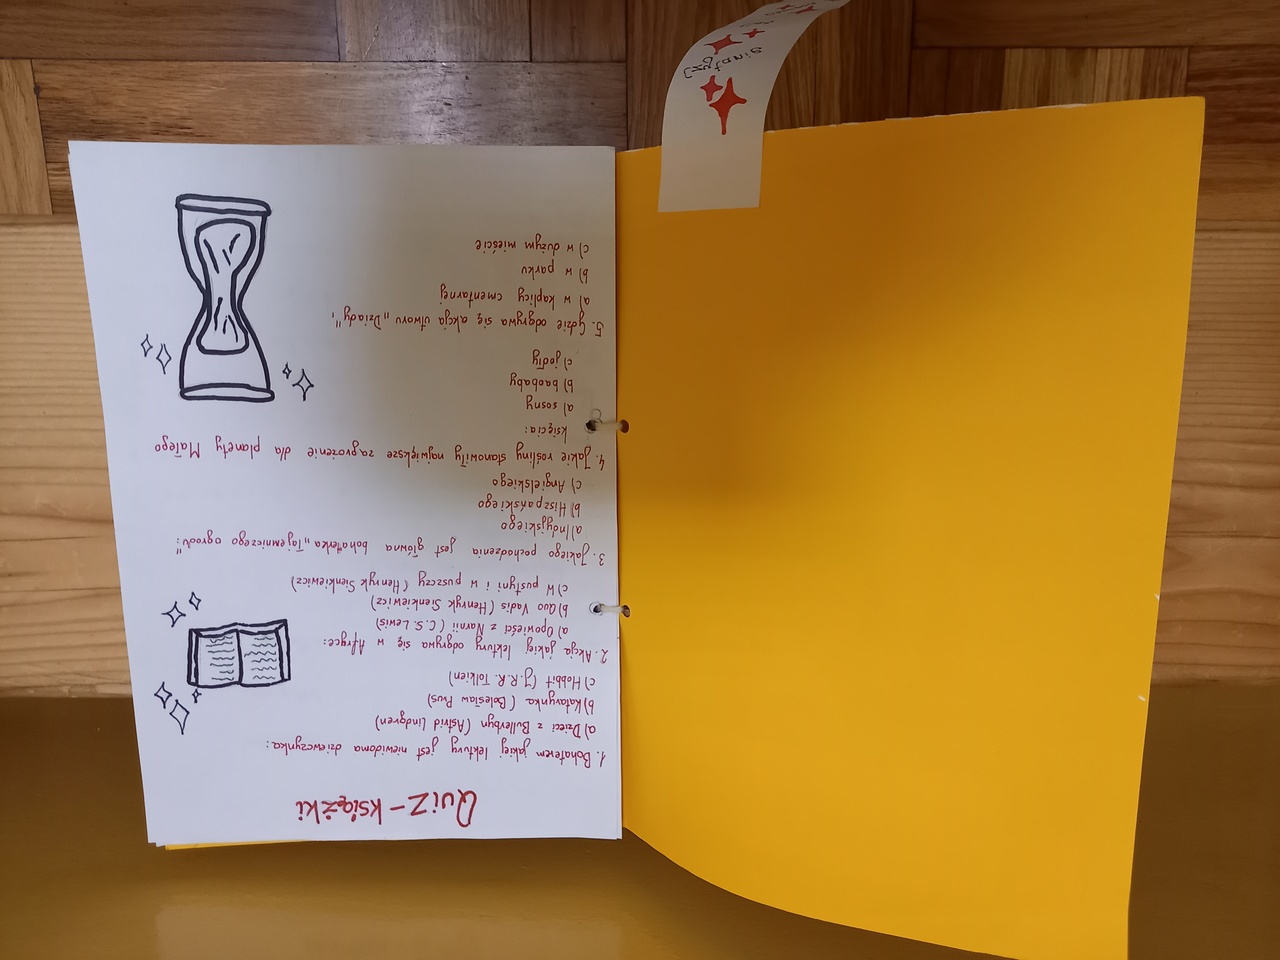 Quiz - książki
1. Bohaterem jakiej lektury jest niewidoma dziewczynka:
a) Dzieci z Bullerbyn (Astrid Lindgren)
b) Katarynka (Bolesław Prus)
c) Hobbit (J.R.R. Tolkien)
2. Akcja jakiej lektury odgrywa się w Afryce:
a) Opowieści z Narnii (C.S. Lewis)
b) Quo Vadis (Henryk Sienkiewicz)
c) W pustyni i w puszczy (Henryk Sienkiewicz)
3. Jakiego pochodzenia jest główna bohaterka „Tajemniczego ogrodu":
a) Indyjskiego
b) Hiszpańskiego
c) Angielskiego
4. Jakie rośliny stanowiły największe zagrożenie dla planety Małego
księcia:
a) sosny
b) baobaby
c) jodły
5. Gdzie odgrywa się akcja utworu „Dziady",
a) w kaplicy cmentarnej
b) w parku
c) w dużym mieście